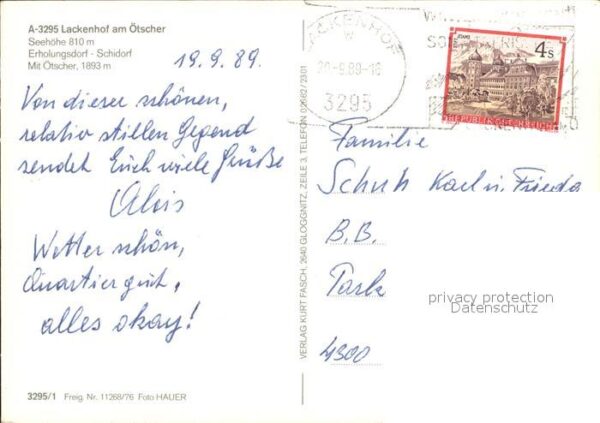 A-3295 Lackenhof am Ötscher
Seehöhe 810 m
Erholungsdorf - Schidorf
Mit Ötscher, 1893 m
19.9.89.
Von dieser schönen,
relativ stillen Gegend
sendet Euch viele Grüße
Alois
Wetter schön,
Quartier gut,
alles okay!
3295/1 Freig. Nr. 11268/76 Foto HAUER
VERLAG KURT FASCH, 2640 GLOGGNITZ, ZEILE 3, TELEFON 02662/2301
LACKENHOF
20.-9.89-16
3295
STAMS
4 S
REPUBLIK ÖSTERREICH
Familie
Schuh Karl u. Frieda
B.B.
Park
4300
privacy protection
Datenschutz